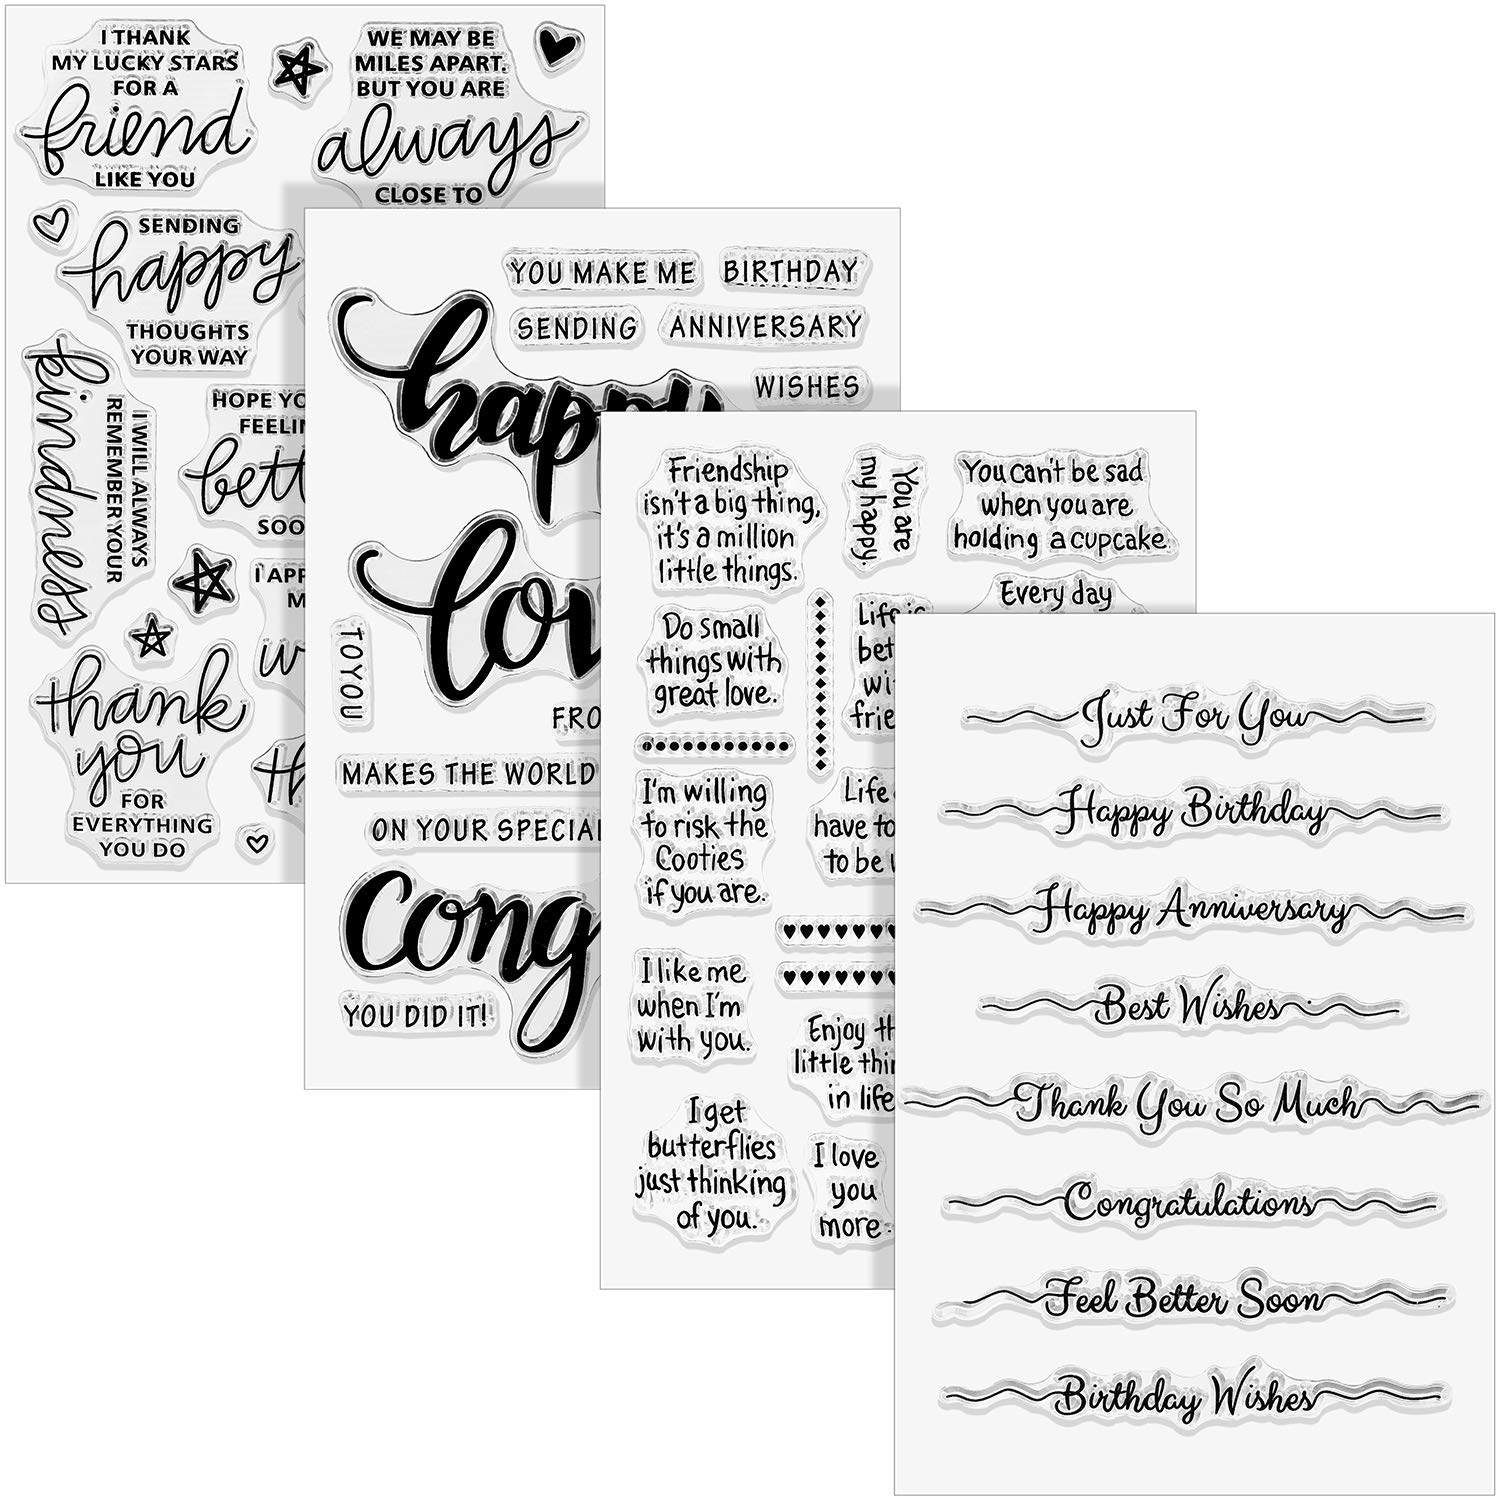 I THANK
MY LUCKY STARS
FOR A
friend
LIKE YOU
WE MAY BE
MILES APART.
BUT YOU ARE
always
CLOSE TO
SENDING
happy
THOUGHTS
YOUR WAY
kindness
I WILL ALWAYS
REMEMBER YOUR
HOPE
thank
you
FOR
EVERYTHING
YOU DO
YOU MAKE ME
BIRTHDAY
SENDING
ANNIVERSARY
WISHES
happy
TO YOU
MAKES THE WORLD
ON YOUR
YOU DID IT!
Friendship
isn't a big thing,
it's a million
little things.
You are
my happy.
You can't be sad
when you are
holding a cupcake.
Every day
Do small
things with
great love.
Life is
I'm willing
to risk the
Cooties
if you are.
Life
have to
to be
I like me
when I'm
with you.
Enjoy
little
in life
I get
butterflies
just thinking
of you.
I love
you
more.
Just For You
Happy Birthday
Happy Anniversary
Best Wishes
Thank You So Much
Congratulations
Feel Better Soon
Birthday Wishes